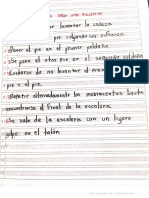 subir una escalera
levantar la cabeza
pie colgando sin esfuerzo
Poner el pie en el primer peldaño
Se pone el otro pie en el segundo peldaño
Cuidarse de no levantar al mismo
pie y el
Repetir alternadamente los movimientos hasta
encontrarse el final de la escalera
Se sale de la escalera con un ligero
golpe en el talón